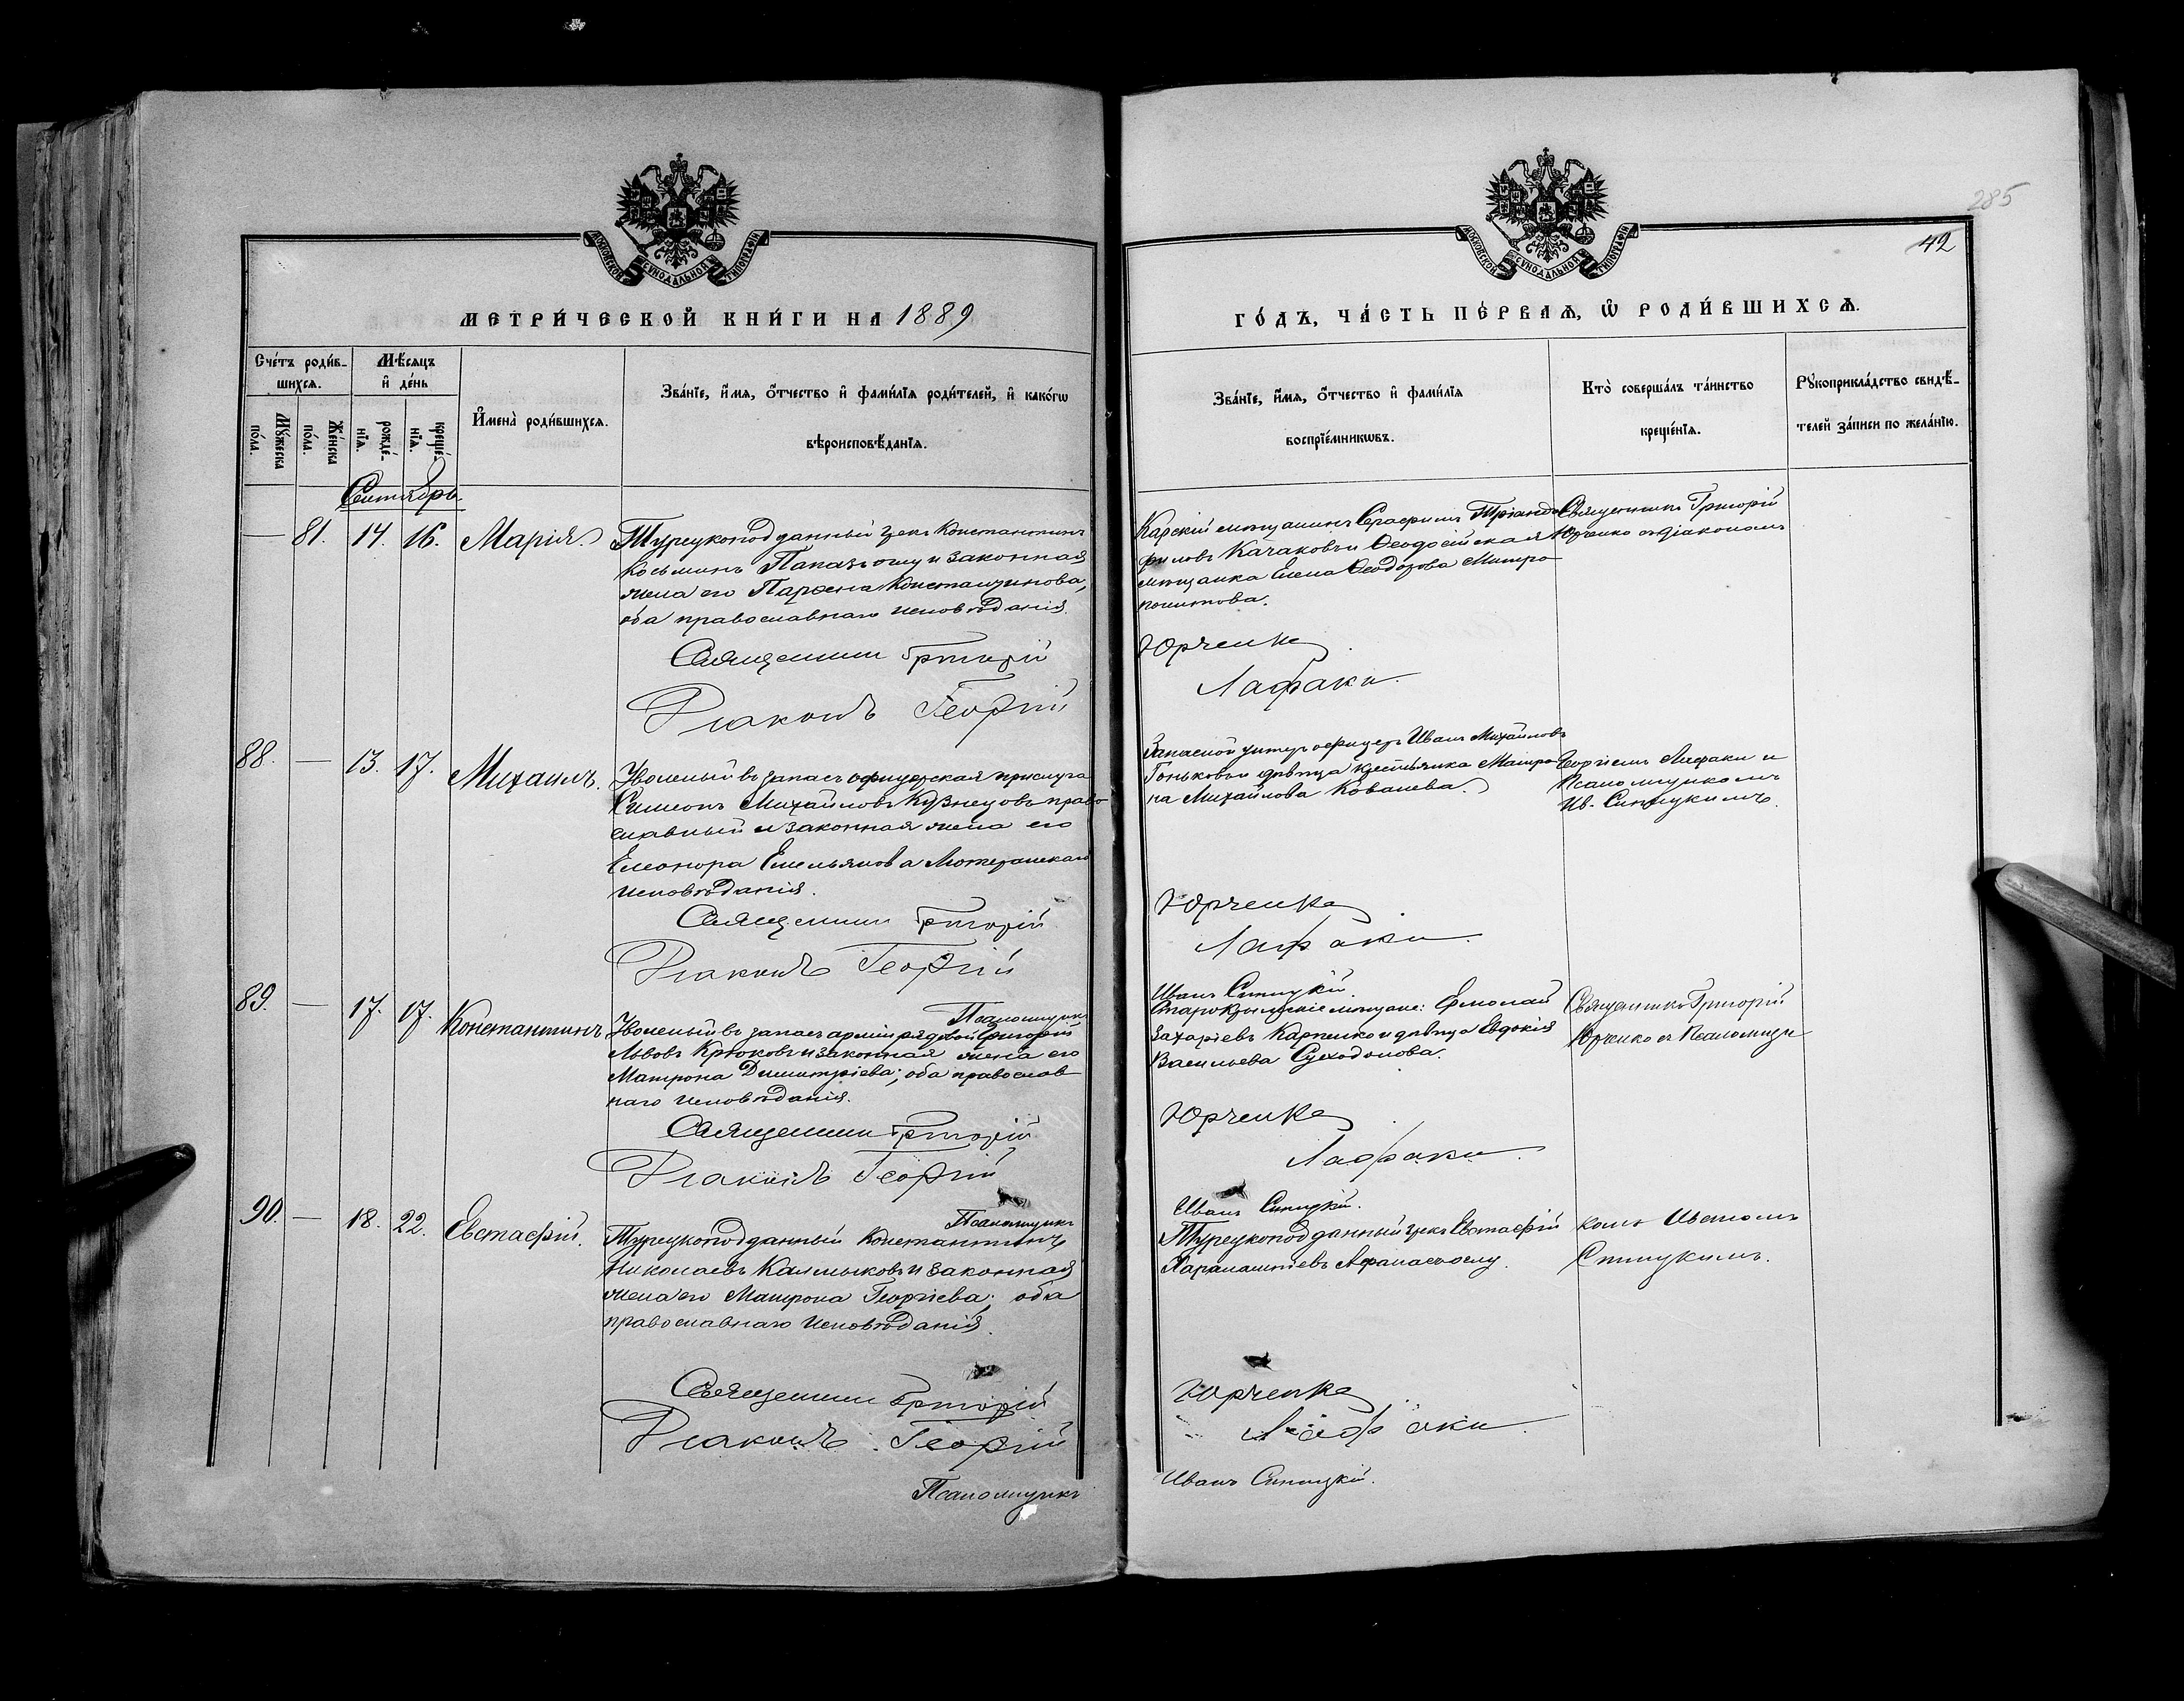 МОСКОВСКОЙ СѴНОДАЛЬНОЙ ТИПОГРАФІИ
МЕТРИ́ЧЕСКОЙ КНИ́ГИ НА 1889
Сче́тъ роди́в-
шихсѧ.
Мѣ́сѧцъ
и҆ де́нь
Мꙋ́жеска
по́ла.
Же́нска
по́ла.
рожде́-
нїѧ.
креще́-
нїѧ.
И҆мена̀ роди́вшихсѧ.
Зва́нїе, и҆́мѧ, ѻ҆́тчество и҆ фами́лїѧ роди́телей, и҆ како́гѡ
вѣроисповѣ́данїѧ.
Сентябрь
— 81. 14. 16. Марія.
Турецкоподданный грекъ Константинъ
Косьминъ Папазъ оглу и законная
жена его Парѳена Константинова,
оба православнаго исповѣданія.
Священникъ Григорій
Діаконъ Георгій
88. — 13. 17. Михаилъ.
Уволеный въ запасъ офицерская прислуга
Симеонъ Михайловъ Кузнецовъ право-
славный и законная жена его
Елеонора Емельянова Лютеранскаго
исповѣданія.
Священникъ Григорій
Діаконъ Георгій
Псаломщикъ
89. — 17. 17. Константинъ
Уволеный въ запасъ арміи рядовой Григорій
Львовъ Крюковъ и законная жена его
Матрона Димитріева; оба православ-
наго исповѣданія.
Священникъ Григорій
Діаконъ Георгій
Псаломщикъ
90. — 18. 22. Евстафій.
Турецкоподданный Константинъ
Николаевъ Калмыковъ и законная
жена его Матрона Георгіева; оба
православнаго исповѣданія.
Священникъ Григорій
Діаконъ Георгій
Псаломщикъ
285
42
МОСКОВСКОЙ СѴНОДАЛЬНОЙ ТИПОГРАФІИ
ГО́ДЪ, ЧА́СТЬ ПЕ́РВАѦ, Ѡ҆ РОДИ́ВШИХСѦ.
Зва́нїе, и҆́мѧ, ѻ҆́тчество и҆ фами́лїѧ
воспрїе́мникѡвъ.
Кто̀ соверша́лъ та́инство
креще́нїѧ.
Рꙋкоприкла́дство свидѣ́-
телей за́писи по жела́нїю.
Карскій мѣщанинъ Серафимъ Тріанда-
филовъ Качаковъ и Ѳеодосійская
мѣщанка Елена Ѳеодорова Митро-
политова.
Юрченко
Лафаки.
Священникъ Григорій
Юрченко съ діакономъ
Запасной унтеръ офицеръ Иванъ Михайловъ
Гоньковъ и дѣвица крестьянка Матро-
на Михайлова Ковалева.
Георгіемъ Лафаки и
Псаломщикомъ
Ив. Синицкимъ.
Юрченко
Лафаки.
Иванъ Синицкій
Старокрымскіе мѣщане: Ермолай
Захаріевъ Карпенко и дѣвица Евдокія
Васильева Суходолова.
Священникъ Григорій
Юрченко съ Псаломщи-
Юрченко
Лафаки.
Иванъ Синицкій.
Турецкоподданный грекъ Евстафій
Харалампіевъ Афанасъ оглу.
комъ Иваномъ
Синицкимъ.
Юрченко
Лафаки.
Иванъ Синицкій.